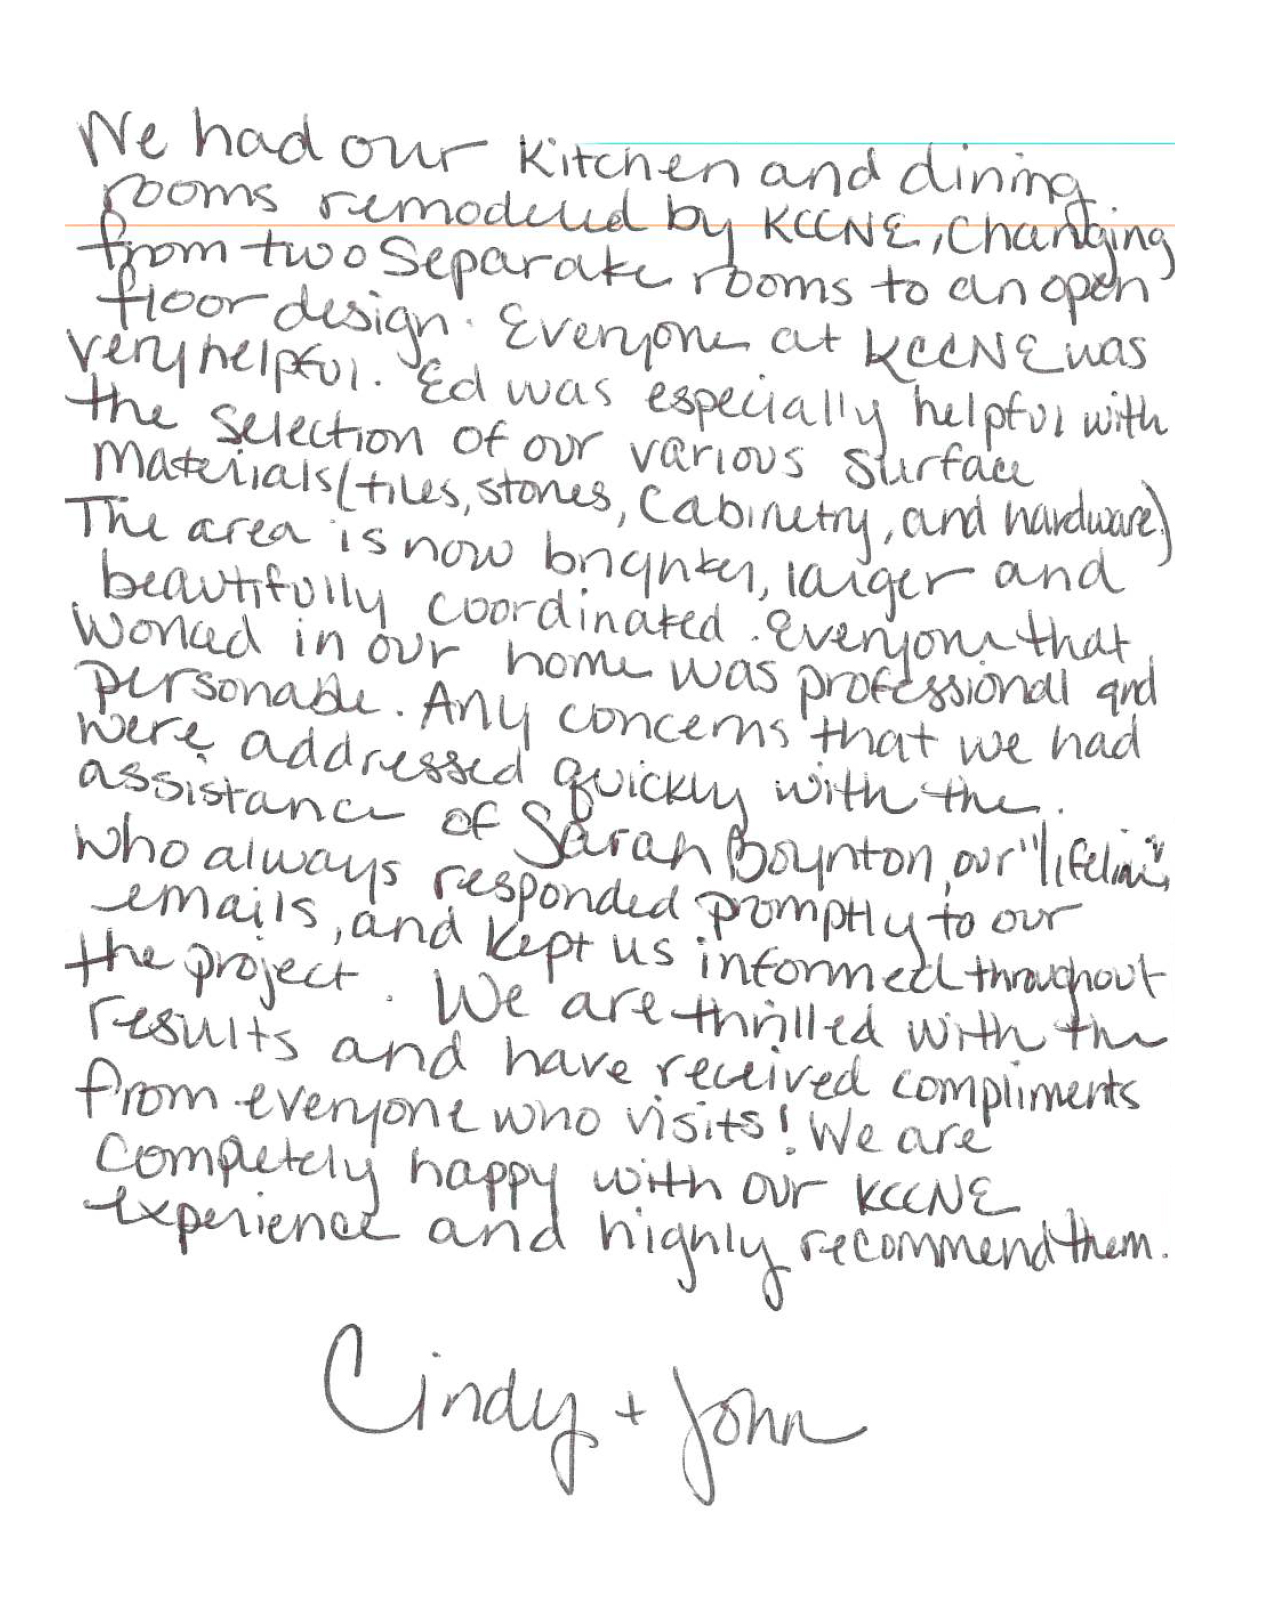 We had our kitchen and dining
rooms remodeled by KCCNE, changing
from two separate rooms to an open
floor design. Everyone at KCCNE was
very helpful. Ed was especially helpful with
the selection of our various surface
materials (tiles, stones, cabinetry, and hardware)
The area is now brighter, larger and
beautifully coordinated. Everyone that
worked in our home was professional and
personable. Any concerns that we had
were addressed quickly with the
assistance of Sarah Boynton, our "lifeline",
who always responded promptly to our
emails, and kept us informed throughout
the project. We are thrilled with the
results and have received compliments
from everyone who visits! We are
completely happy with our KCCNE
experience and highly recommend them.
Cindy + John